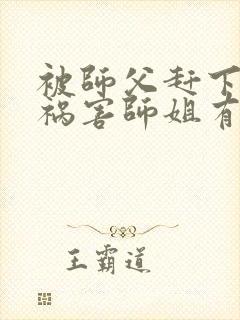 被師父赶下
祸害師姐有
王霸道